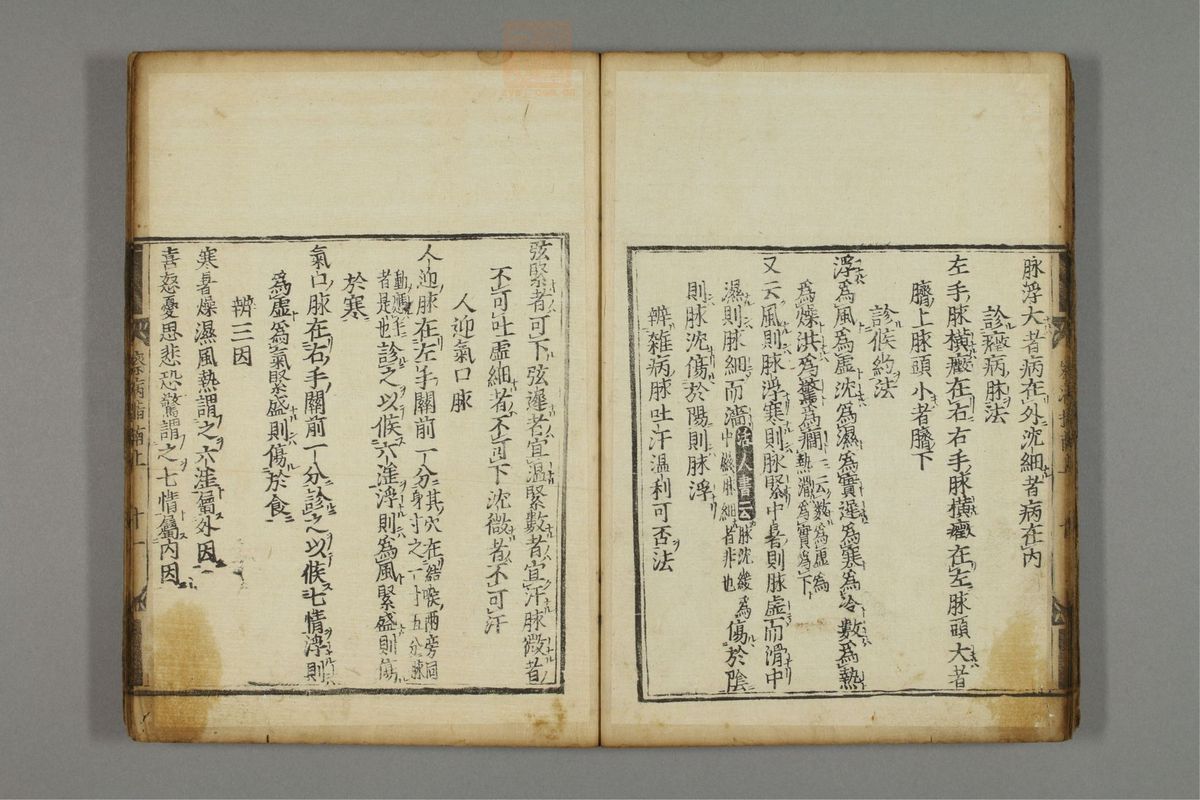 脉浮大者病在外沈細者病在内
診癥病脉法
左手脉橫癥在右右手脉橫癥在左脉頭大者
臍上脉頭小者臍下
診候約法
浮為風為虛沈為濕為實遲為寒為冷數為熱
為燥洪為驚為癇一云數為虛為熱滑為實為下
又云風則脉浮寒則脉緊中暑則脉虛而滑中
濕則脉細而濇活人書云脉沈緩中濕脉細者非也為傷於陰
則脉沈傷於陽則脉浮
辨雜病脉吐汗温利可否法
弦緊者可下弦遲者宜温緊數者宜汗脉微者
不可吐虛細者不可下沈微者不可汗
人迎氣口脉
人迎脉在左手關前一分其穴在結喉兩旁同身寸之一寸五分脉
動應手者是也診之以候六淫浮則為風緊盛則傷
於寒
氣口脉在右手關前一分診之以候七情浮則
為虛為氣緊盛則傷於食
辨三因
寒暑燥濕風熱謂之六淫屬外因
喜怒憂思悲恐驚謂之七情屬内因
察病指南上 十一